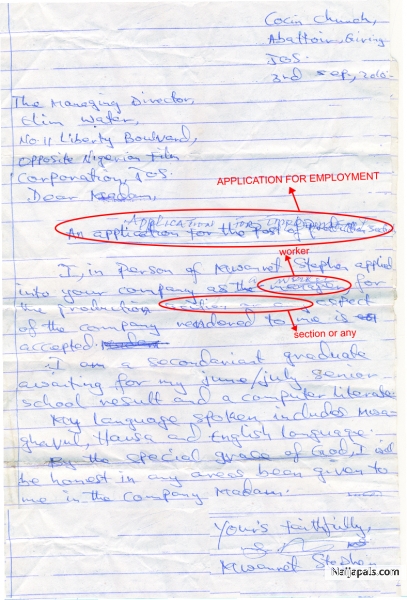 Cocin Church,
Abattoir Giring
Jos.
3rd Sep, 2010
The Managing Director,
Elim Water,
No 11 Liberty Boulevard,
Opposite Nigerian Film
Corporation, Jos.
Dear Madam,
APPLICATION FOR EMPLOYMENT
APPLICATION FOR
An application for the post of production
worker
I, in person of Mwanret Stephen applied
into your company as the worker for
the production section or any aspect
of the company rendered to me is
accepted.
section or any
I am a secondariat graduate
awaiting for my june/july senior
school result and a computer literate
My language spoken includes Mwa-
ghavul, Hausa and English language.
By the special grace of God, I will
be honest in any areas been given to
me in the company Madam.
Yours faithfully,
Mwanret Stephen
Naijapals.com